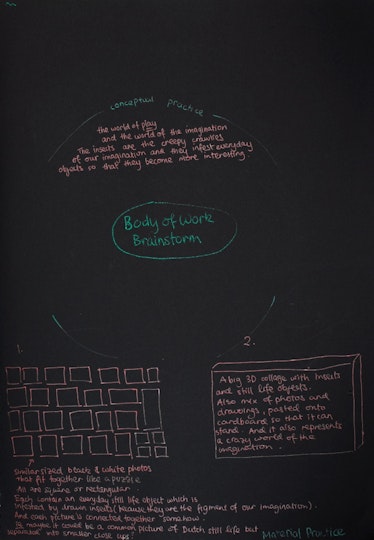 conceptual practice
the world of play
and the world of the imagination
The insects are the creepy crawlies
of our imagination and they infest everyday
objects so that they become more interesting.
Body of Work
Brainstorm
1.
2.
A big 3D collage with insects
and still life objects.
Also mix of photos and
drawings, pasted onto
cardboard so that it can
stand. And it also represents
a crazy world of the
imagination.
Similar sized black & white photos
that fit together like a puzzle
All are square or rectangular.
Each contain an everyday still life object which is
infested by drawn insects (because they are the figment of our imagination).
And each picture is connected together somehow.
maybe it could be a common picture of Dutch still life but
separated into smaller close ups?
Material Practice